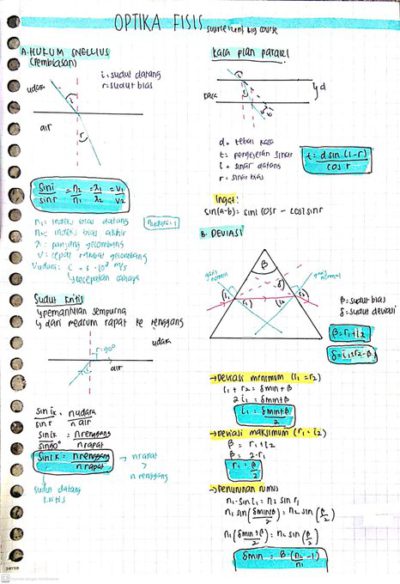 OPTIKA FISIS
A. HUKUM SNELLIUS
(Pembiasan)
i = sudut datang
r = sudut bias
udara
i
air
r
sin i / sin r = n₂ / n₁ = λ₁ / λ₂ = v₁ / v₂
n₁ = indeks bias datang
n₂ = indeks bias akhir
λ = panjang gelombang
v = cepat rambat gelombang
c = 3 · 10⁸ m/s
kecepatan cahaya
Sudut kritis
↳ pemantulan sempurna
↳ dari medium rapat ke renggang
r = 90°
udara
air
sin ik / sin r = n udara / n air
sin ik / sin 90° = n renggang / n rapat
sin ik = n renggang / n rapat
→ n rapat
>
n renggang
sudut datang
kritis
Kaca plan paralel
d
kaca
d = tebal kaca
t = pergeseran sinar
i = sinar datang
r = sinar bias
t = d sin (i-r) / cos r
Ingat:
sin(a-b) = sin i cos r - cos i sin r
B. DEVIASI
β
garis normal
δ
β = sudut bias
δ = sudut deviasi
β = r₁ + i₂
δ = i₁ + r₂ - β
→ Deviasi minimum (i₁ = r₂)
i₁ + r₂ = δmin + β
2 i₁ = δmin + β
i₁ = δmin + β / 2
→ Deviasi maksimum (r₁ = i₂)
β = r₁ + i₂
β = 2 · r₁
r₁ = β / 2
→ Penurunan rumus
n₁ · sin i₁ = n₂ sin r₁
n₁ sin (δmin + β / 2) = n₂ sin (β / 2)
n₁ (δmin + β / 2) = n₂ sin (β / 2)
δmin = β · (n₂ / n₁ - 1)